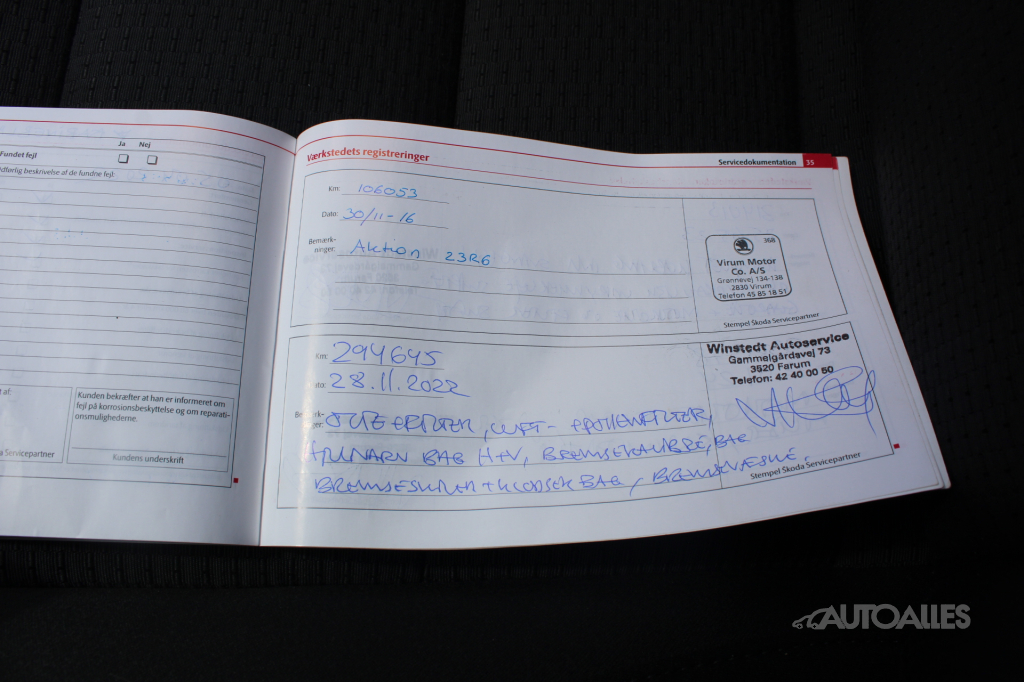 Ja Nej
Fundet fejl
dførlig beskrivelse af de fundne fejl:
t af:
a Servicepartner
Kunden bekræfter at han er informeret om
fejl på korrosionsbeskyttelse og om reparati-
onsmulighederne.
Kundens underskrift
Værkstedets registreringer
Servicedokumentation 35
Km: 106053
Dato: 30/11-16
Bemærk-
ninger: Aktion 23R6
368
Virum Motor
Co. A/S
Grønnevej 134-138
2830 Virum
Telefon 45 85 18 51
Stempel Škoda Servicepartner
Km: 294645
ato: 28.11.2022
LUFT-
BAG H+V, BAG
BAG, BREMSEVÆSKE.
Winstedt Autoservice
Gammelgårdsvej 73
3520 Farum
Telefon: 42 40 00 50
Stempel Škoda Servicepartner
AUTOALLES